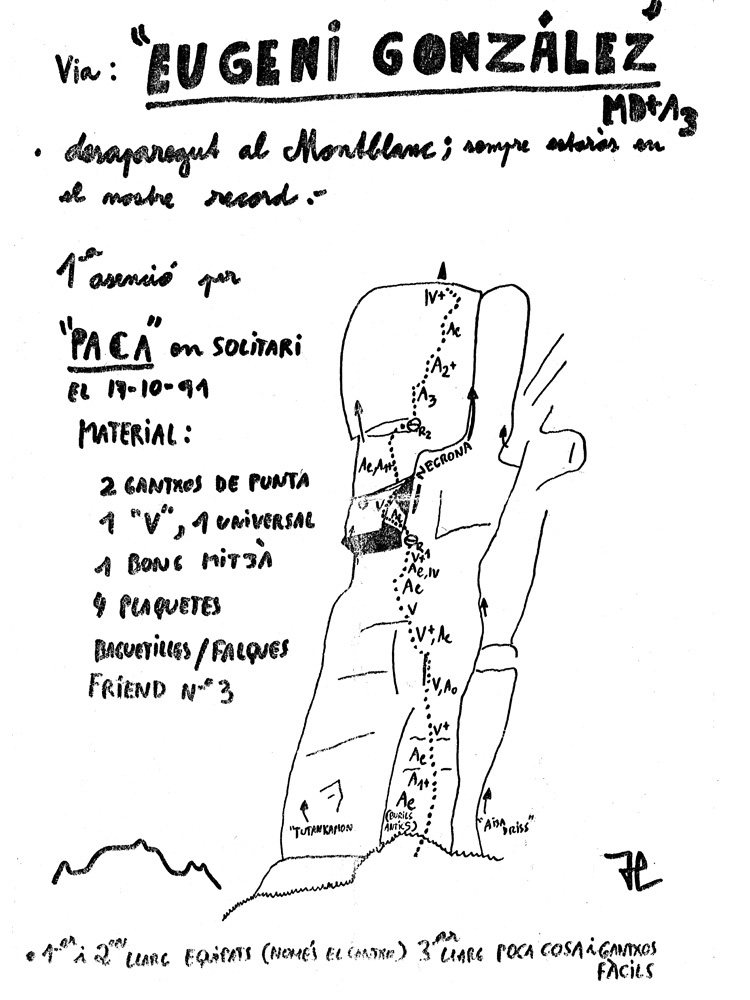 Via: "EUGENI GONZÁLEZ"
MD+A3
• desaparegut al Montblanc; sempre estaràs en
el nostre record.-
1ª asenció per
"PACA" en SOLITARI
EL 17-10-91
MATERIAL:
2 GANTXOS DE PUNTA
1 "V", 1 UNIVERSAL
1 BONG MITJÀ
4 PLAQUETES
BAGUETILLES/FALQUES
FRIEND Nº 3
IV+
Ae
A2+
A3
R2
Ae, A1+
NEGRONA
V
A1
R1
V+
Ae, IV
Ae
V
V+, Ae
V, A0
V+
Ae
A1+
Ae
(BURILS
ANTICS)
"TUTANKAMON"
"AIDA
DRISS"
• 1er i 2on LLARG EQUIPATS (NOMÉS EL GANTXO) 3er LLARG POCA COSA i GANTXOS
FÀCILS